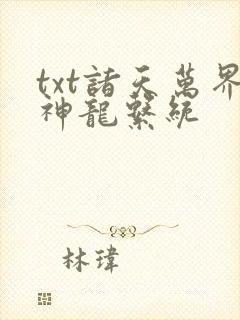 txt諸天萬界
神龍繫統
林瑋